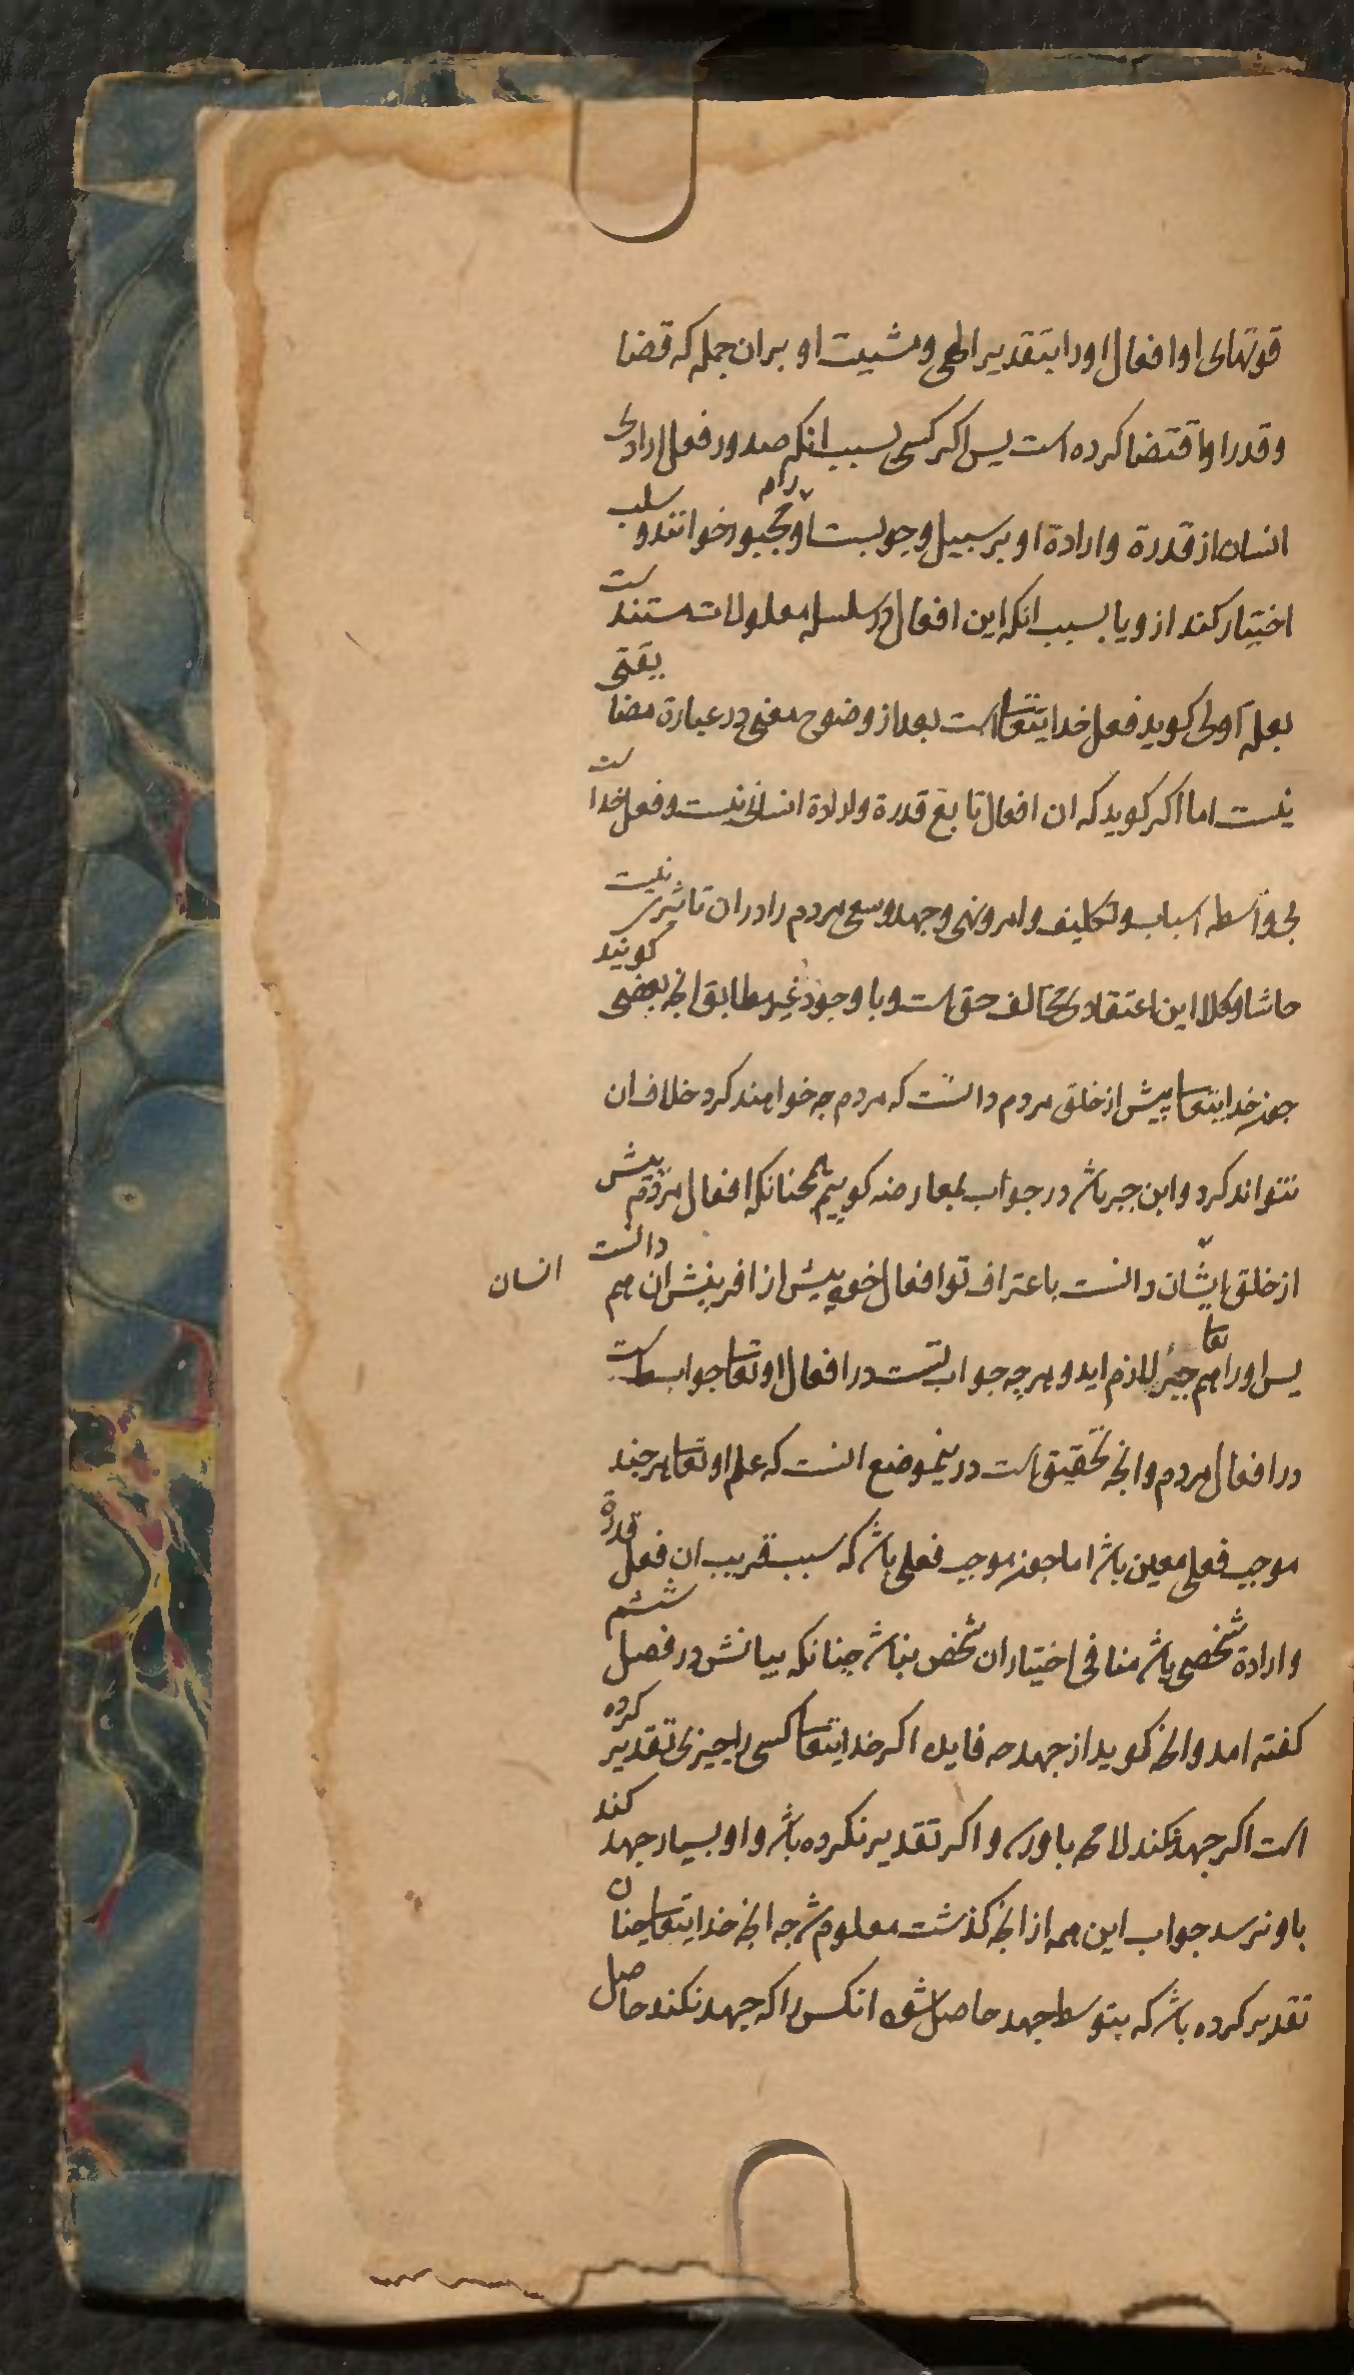 قوتهای او افعال او را بتقدیر الهی و مشیت او بران جمله که قضا
و قدر او اقتضا کرده است پس اکر کسی بسبب انکه صدور فعل ارادی
انسان از قدرة و ارادة او بر سبیل وجوبست او را مجبور خوانند و سلب
اختیار کند ازو یا بسبب انکه این افعال در سلسله معلولات مستند است
بعلة اولی کوید فعل خدایتعا است بعد از وضوح معنی در عبارة مضایقتی
نیست اما اکر کوید که ان افعال تابع قدرة و ارادة انسانی نیست و فعل خدا است
بی واسطه اسباب و تکلیف و امر و نهی و جهد و سعی مردم را دران تاثیری نیست
حاشا و کلا این اعتقادی مخالف حق است و با وجود غیر مطابق انچه بعضی کویند
چون خدایتعا پیش از خلق مردم دانست که مردم چه خواهند کرد خلاف ان
نتواند کرد و این جبر باشد در جواب بمعارضه کوییم همچنانکه افعال مردم پیش
از خلق ایشان دانست باعتراف تو افعال خود پیش از افرینش ان هم دانست
انسان
پس او را تعا هم جبر لازم اید و هرچه جواب تست در افعال او تعا جواب ماست
در افعال مردم و انچه تحقیق است درینموضع انست که علم او تعا هرچند
موجب فعلی معین باشد اما چون موجب فعلی باشد که سبب قریب ان فعل قدرة
و ارادة شخصی باشد منافی اختیار ان شخص نباشد چنانکه بیانش در فصل ششم
کفته امد و انچه کوید از جهد چه فایده اکر خدایتعا کسی را چیزی تقدیر کرده
است اکر جهد نکند لا محه باو رسد و اکر تقدیر نکرده باشد و او بسیار جهد کند
باو نرسد جواب این همه از انچه کذشت معلوم شد چه انچه خدایتعا چنان
تقدیر کرده باشد که بتوسط جهد حاصل شود انکس را که جهد نکند حاصل